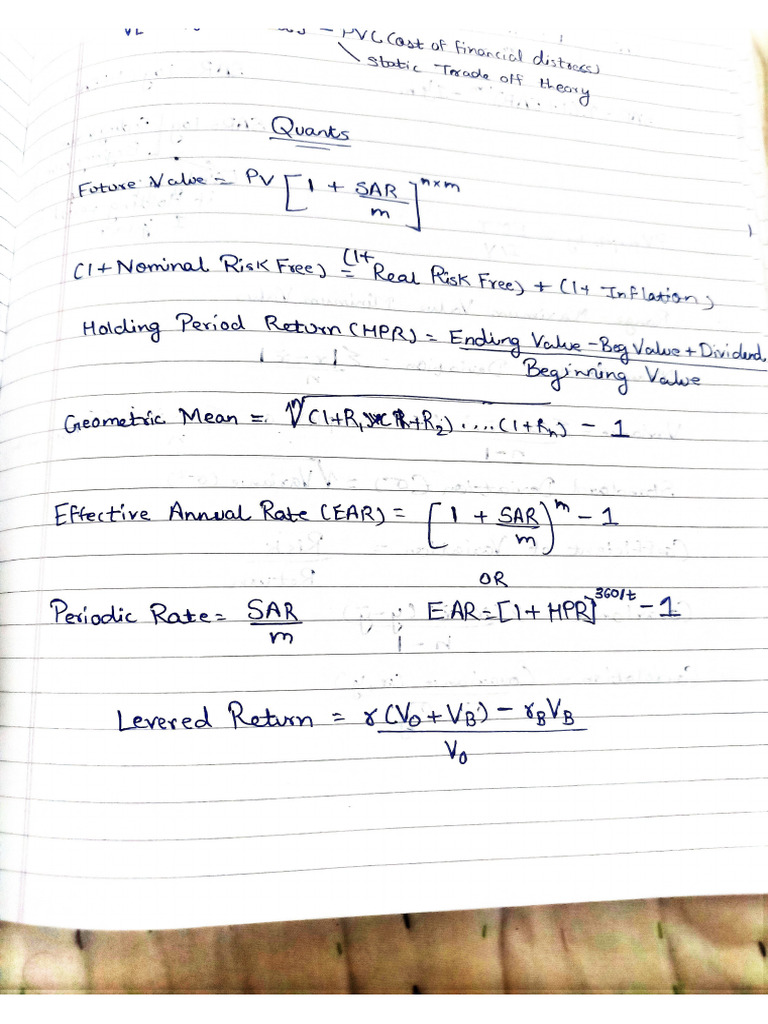 VL - PV(Cost of financial distress)
Static Trade off theory
Quants
Future Value = PV [1 + SAR/m]^n×m
(1+Nominal Risk Free) = (1+ Real Risk Free) + (1+ Inflation)
Holding Period Return (HPR) = Ending Value - Beg Value + Dividend / Beginning Value
Geometric Mean = n√(1+R1)×(1+R2)....(1+Rn) - 1
Effective Annual Rate (EAR) = [1 + SAR/m]^m - 1
OR
Periodic Rate = SAR/m EAR = [1 + HPR]^360/t - 1
Levered Return = r(V0 + VB) - rBVB / V0